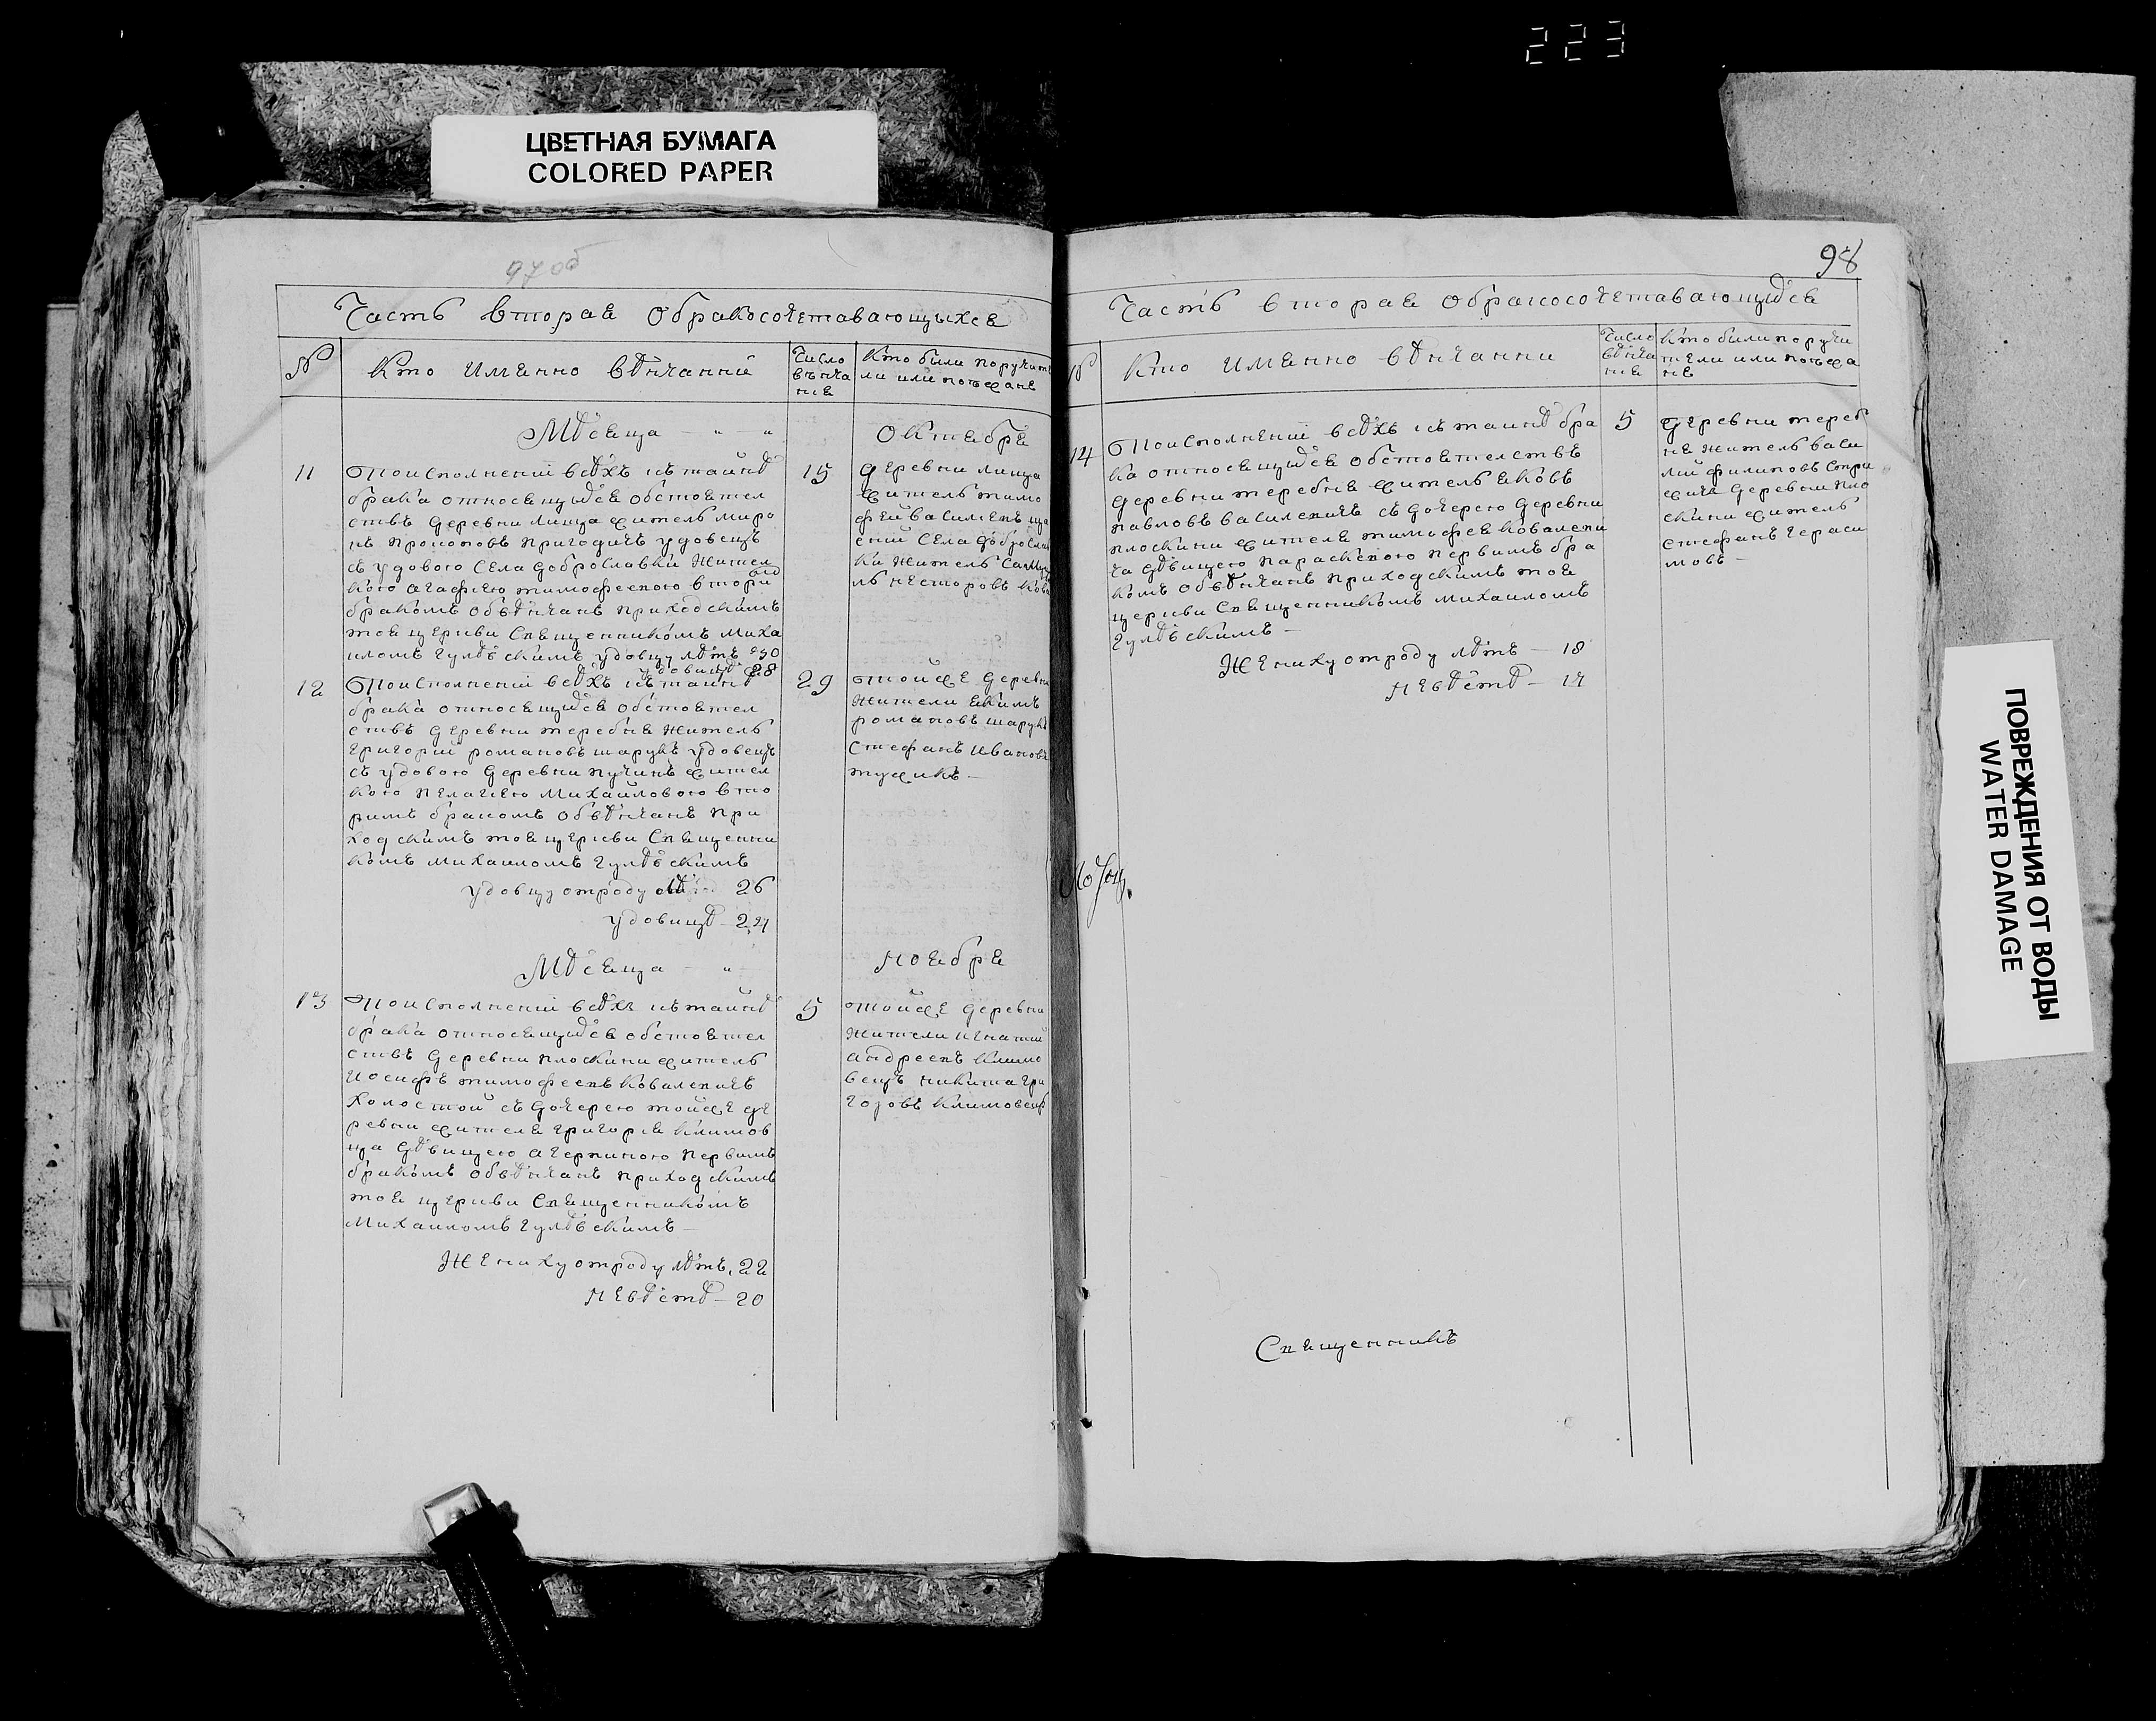 223
ЦВЕТНАЯ БУМАГА
COLORED PAPER
97 об
Часть вторая о бракосочетавающыхся
№
Кто именно вѣнчанній
Число вѣнча нія
Кто были поручите ли или поезжане
Мѣсяца — " — "
Октября
11
По исполненій всѣхъ къ таинѣ
брака относящихся обстоятел
ствъ деревни Лища житель Миро
нъ Прокоповъ Пригодичъ удовецъ
съ удовою села Доброславки жител
кою Агафіею Тимофеевою вторы
бракомъ обвѣнчанъ приходскимъ
тоя церкви Священникомъ Миха
иломъ Гулѣвскимъ удовцу лѣтъ 30
удовицѣ 28
15
деревни Лища
житель Тимо
фей Василевъ
села Доброслав
ки житель Самуи
лъ Несторовъ
12
По исполненій всѣхъ къ таинѣ
брака относящихся обстоятел
ствъ деревни Теребня житель
Григорій Романовъ Шарукъ удовецъ
съ удовою деревни Пучинъ жител
кою Пелагіею Михайловою вто
римъ бракомъ обвѣнчанъ при
ходскимъ тоя церкви Священни
комъ Михаиломъ Гулѣвскимъ
удовцу отроду 26
удовицѣ — 24
29
тойже деревни
жители Якимъ
Романовъ Шарукъ
Стефанъ Ивановъ
Мѣсяца — " —
Ноября
13
По исполненій всѣхъ къ таинѣ
брака относящихся обстоятел
ствъ деревни Плоскини житель
Иосифъ Тимофеевъ Ковалевичъ
холостой съ дочерею тойже де
ревни жителя Григорія Климов
ца дѣвицею Агерпиною первимъ
бракомъ обвѣнчанъ приходскимъ
тоя церкви Священникомъ
Михаиломъ Гулѣвскимъ —
Жениху отроду лѣтъ 22
Невѣстѣ — 20
5
тойже деревни
жители Игнатій
Андреевъ Климо
вецъ Никита Гри
горовъ Климовецъ
98
Часть вторая о бракосочетавающихся
№
Кто именно вѣнчанни
Число вѣнча нія
Кто были поручи тели или поезжа не
14
По исполненій всѣхъ къ таинѣ бра
ка относящихся обстоятелствъ
деревни Теребня житель Яковъ
Павловъ Василевичъ съ дочерею деревни
Плоскини жителя Тимофея Ковалеви
ча дѣвицею Параскевою первимъ бра
комъ обвѣнчанъ приходскимъ тоя
церкви Священникомъ Михаиломъ
Гулѣвскимъ —
Жениху отроду лѣтъ — 18
Невѣстѣ — 17
5
деревни Тереб
ня житель Васи
лий Филиповъ Стри
жичъ деревни Пло
скини житель
Стефанъ Гераси
мовъ —
Священникъ
ПОВРЕЖДЕНИЯ ОТ ВОДЫ
WATER DAMAGE